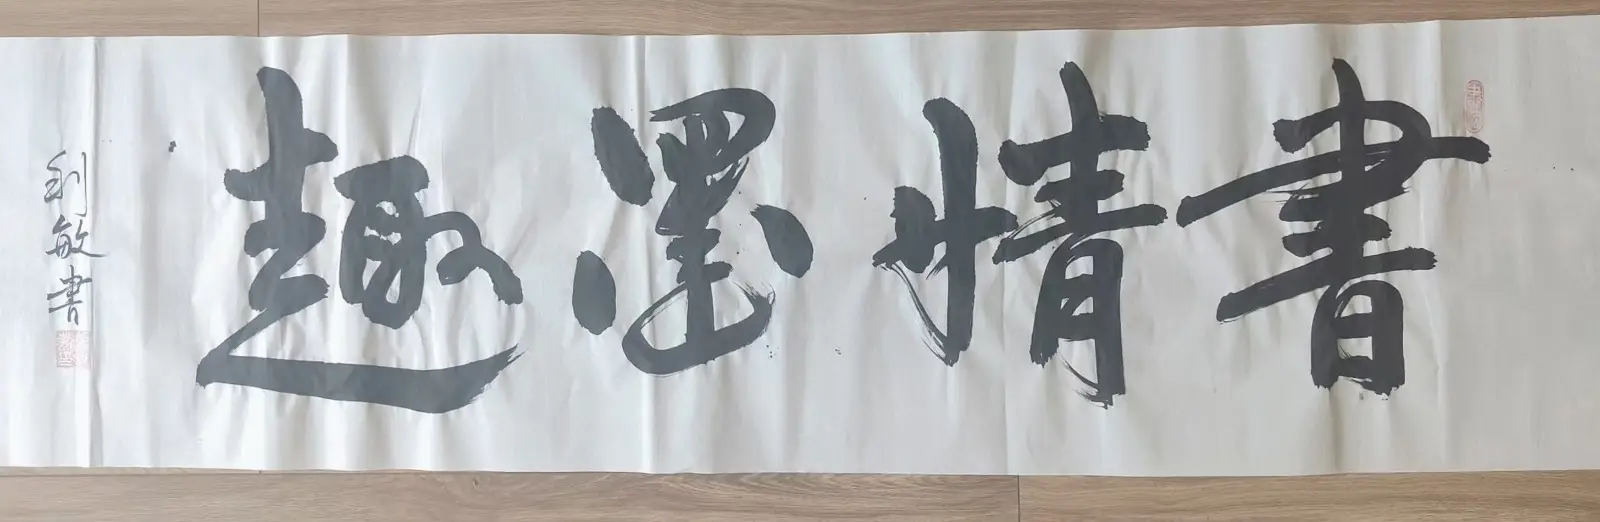 書情墨趣
利敏書